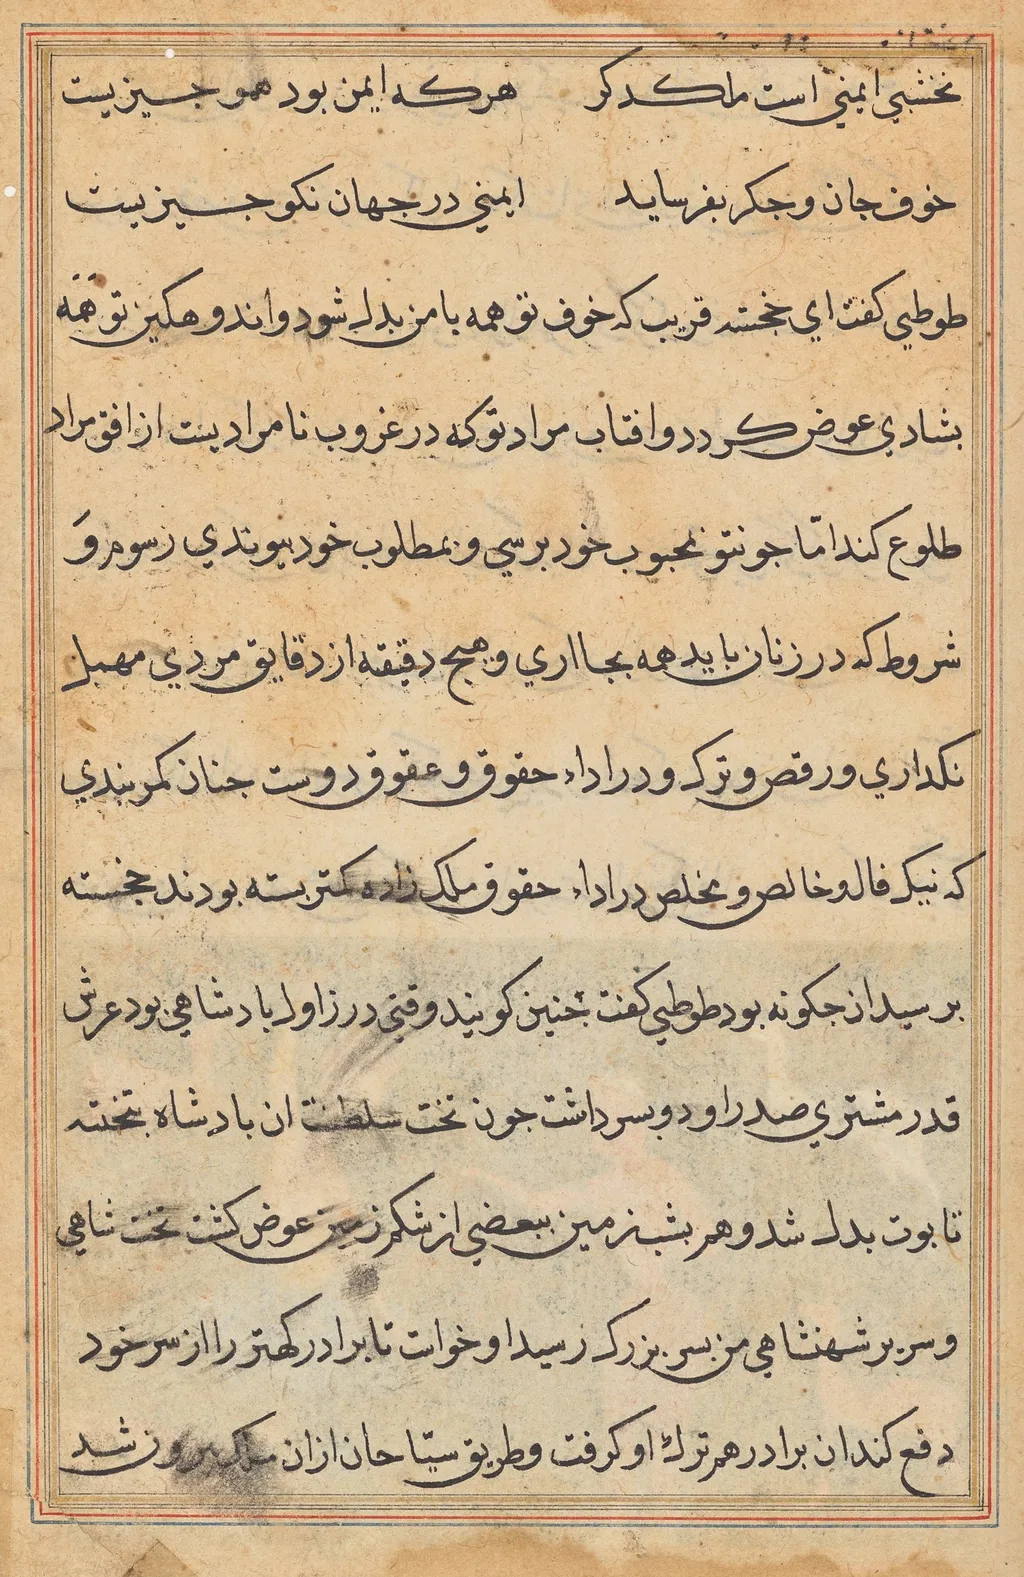 نخشبي ايمني است ملك دكر هركه ايمن بود همو جيزيست
خوف جان و جكر بفرسايد ايمني در جهان نكو جيزيست
طوطي كفت اي خجسته قريب كه خوف تو همه با من بدل شود و اندوهكين تو همه
بشادي عوض كردد و افتاب مراد تو كه در غروب نامراديست از افق مراد
طلوع كند امّا جون تو بمحبوب خود برسي و بمطلوب خود پيوندي رسوم وَ
شروط كه در زنان بايد همه بجا اري و هيچ دقيقه از دقايق مردي مهمل
نكداري و رقص و ترك و در اداء حقوق و عقوق دوست جنان كمر بندي
كه نيك فال و خالص و مخلص در اداء حقوق ملك زاده كمر بسته بودند خجسته
برسيد ان جكونه بود طوطي كفت جنين كويند وقتي در زاول بادشاهي بود عرش
قدر مشتري صدر او دو بسر داشت جون تخت سلطنت ان بادشاه بتخته
تابوت بدل شد و هم بشب زمين ببعضي از شكم زمين عوض كشت تخت شاهي
و سرير شهنشاهي من بسر بزرك رسيد او خواست تا برادر كهتر را از سر خود
دفع كند ان برادر هم ترك او كرفت و طريق سيّاحان ازان ملك بيرون شد